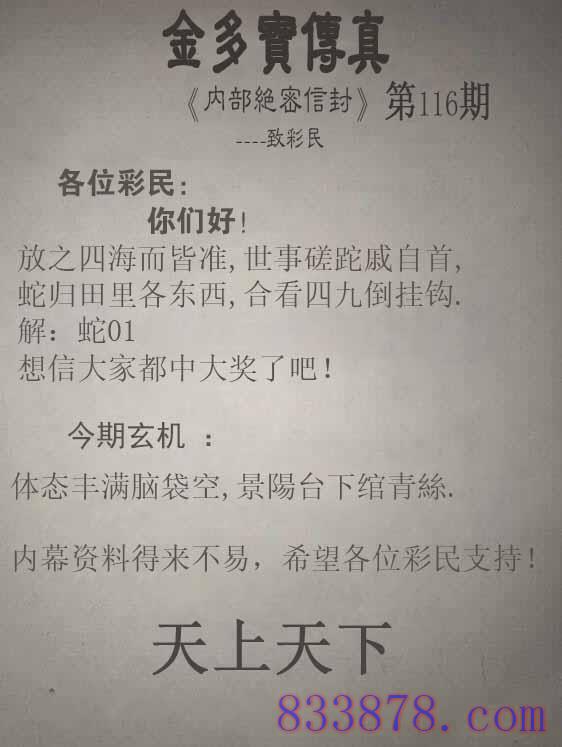 金多寶傳真
《内部絕密信封》第116期
----致彩民
各位彩民:
你们好!
放之四海而皆准,世事磋跎戚自首,
蛇归田里各东西,合看四九倒挂钩.
解：蛇01
想信大家都中大奖了吧!
今期玄机 :
体态丰满脑袋空,景陽台下绾青絲.
内幕资料得来不易，希望各位彩民支持!
天上天下
833878.com